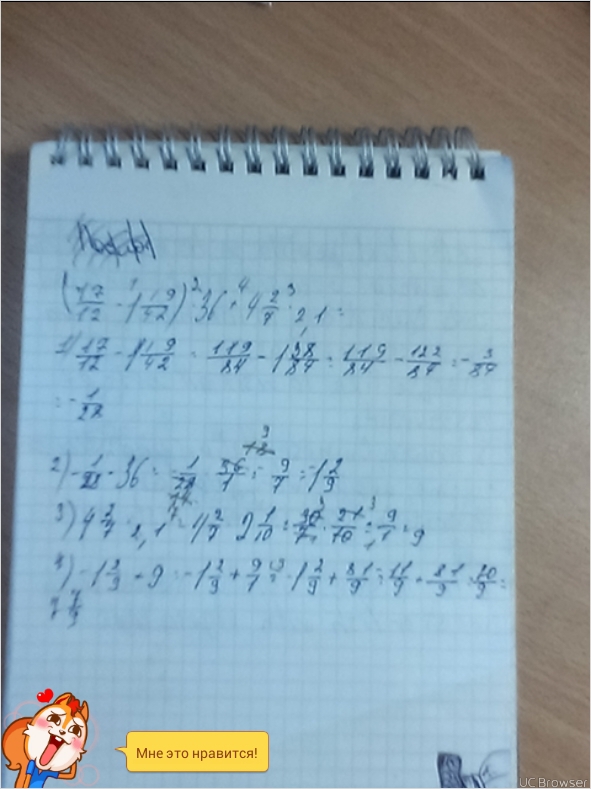 (17/12 - 1 19/42) · 36 + 4 2/7 · 2,1 =
1) 17/12 - 1 19/42 = 119/84 - 1 38/84 = 119/84 - 122/84 = - 3/84
= - 1/28
2) - 1/28 · 36 = - 1/28 · 36/1 = - 9/7 = -1 2/9
3) 4 2/7 · 2,1 = 4 2/7 · 2 1/10 = 30/7 · 21/10 = 9/1 = 9
4) -1 2/9 + 9 = -1 2/9 + 9/1 = -1 2/9 + 81/9 = 11/9 + 81/9 = 70/9 =
7 7/9
Мне это нравится!
UC Browser